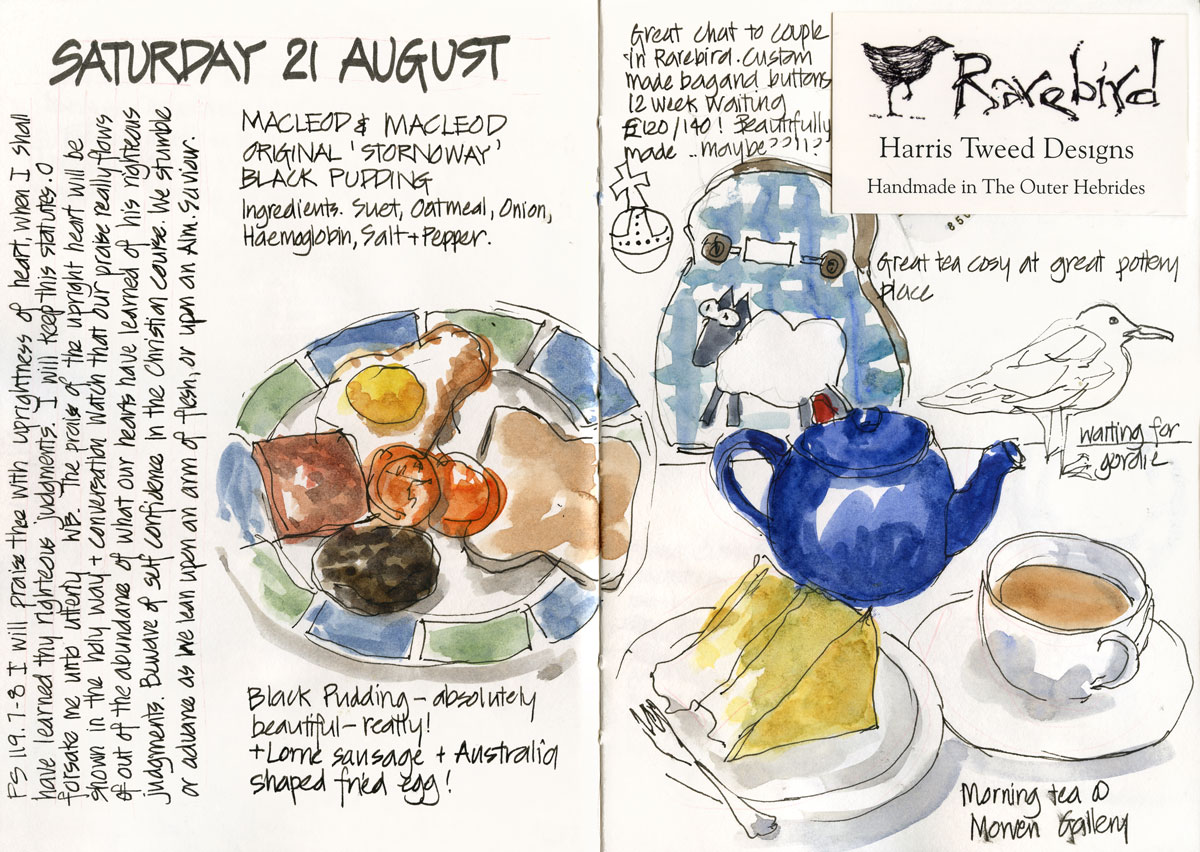 SATURDAY 21 AUGUST
PS 119.7-8 I will praise thee with uprightness of heart, when I shall
have learned thy righteous judgments. I will keep this statutes. O
forsake me unto utterly NB. The praise of the upright heart will be
shown in the holy way + conversation. Watch that our praise really flows
of out of the abundance of what our hearts have learned of his righteous
judgments. Beware of self confidence in the Christian course. We stumble
or advance as we lean upon an arm of flesh, or upon an Alm. Saviour.
MACLEOD & MACLEOD
ORIGINAL 'STORNOWAY'
BLACK PUDDING
Ingredients. Suet, Oatmeal, Onion,
Haemoglobin, Salt + Pepper.
Black Pudding - absolutely
beautiful - really!
+ Lorne sausage + Australia
shaped fried egg!
Great chat to couple
in Rarebird. Custom
made bag and buttons
12 week waiting
£120/140! Beautifully
made .. maybe??!!?
Rarebird
Harris Tweed Designs
Handmade in The Outer Hebrides
850
Great tea cosy at great pottery
place
waiting for
gordie
Morning tea @
Morven Gallery